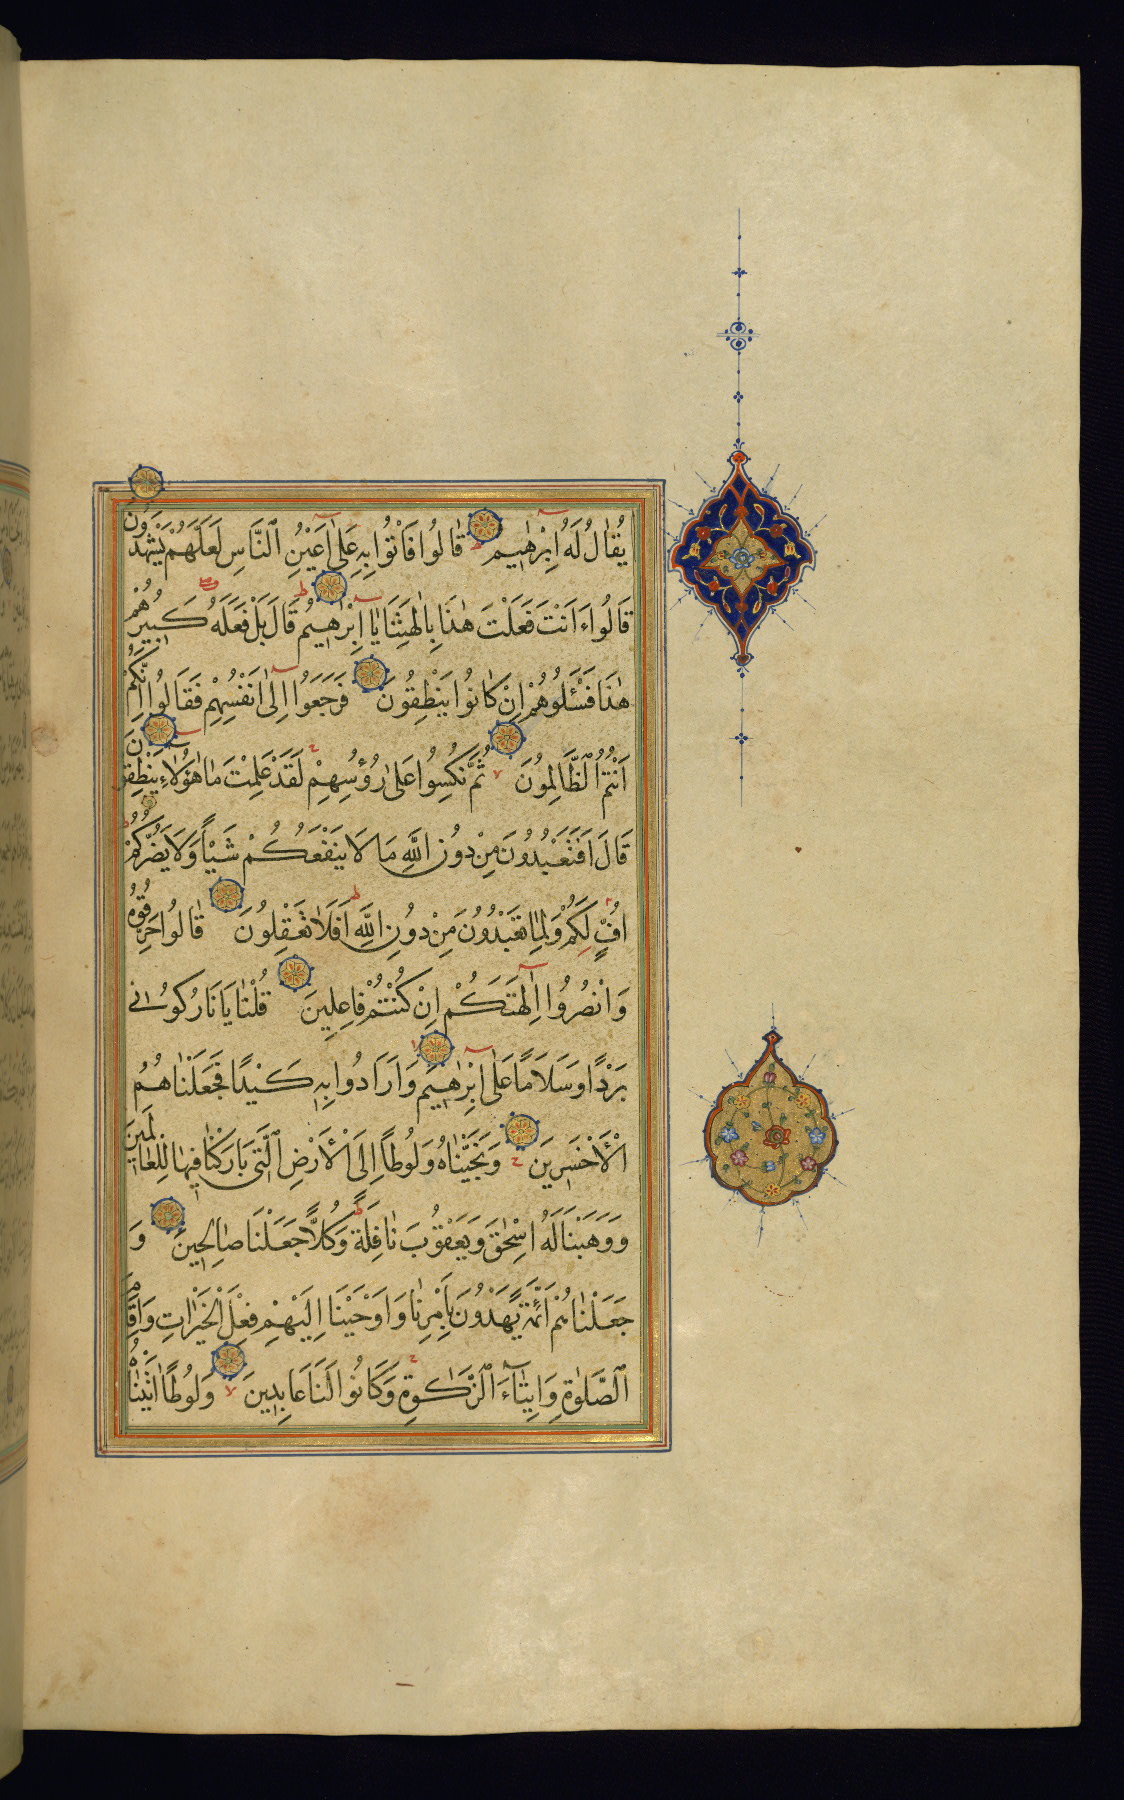 يُقَالُ لَهُ اِبْرٰهِيمُ قَالُوا فَاْتُوا بِهِ عَلٰى اَعْيُنِ النَّاسِ لَعَلَّهُمْ يَشْهَدُونَ
قَالُوا ءَاَنْتَ فَعَلْتَ هٰذَا بِاٰلِهَتِنَا يَا اِبْرٰهِيمُ قَالَ بَلْ فَعَلَهُ كَبِيرُهُمْ
هٰذَا فَسْـَٔلُوهُمْ اِنْ كَانُوا يَنْطِقُونَ فَرَجَعُوا اِلٰى اَنْفُسِهِمْ فَقَالُوا اِنَّكُمْ
اَنْتُمُ الظَّالِمُونَ ثُمَّ نُكِسُوا عَلٰى رُؤُسِهِمْ لَقَدْ عَلِمْتَ مَا هٰؤُلَاءِ يَنْطِقُونَ
قَالَ اَفَتَعْبُدُونَ مِنْ دُونِ اللَّهِ مَا لَا يَنْفَعُكُمْ شَيْـًٔا وَلَا يَضُرُّكُمْ
اُفٍّ لَكُمْ وَلِمَا تَعْبُدُونَ مِنْ دُونِ اللَّهِ اَفَلَا تَعْقِلُونَ قَالُوا حَرِّقُوهُ
وَانْصُرُوا اٰلِهَتَكُمْ اِنْ كُنْتُمْ فَاعِلِينَ قُلْنَا يَا نَارُ كُونِى
بَرْدًا وَسَلَامًا عَلٰى اِبْرٰهِيمَ وَاَرَادُوا بِهِ كَيْدًا فَجَعَلْنَاهُمُ
الْاَخْسَرِينَ وَنَجَّيْنَاهُ وَلُوطًا اِلَى الْاَرْضِ الَّتِى بَارَكْنَا فِيهَا لِلْعَالَمِينَ
وَوَهَبْنَا لَهُ اِسْحٰقَ وَيَعْقُوبَ نَافِلَةً وَكُلًّا جَعَلْنَا صَالِحِينَ وَ
جَعَلْنَاهُمْ اَئِمَّةً يَهْدُونَ بِاَمْرِنَا وَاَوْحَيْنَا اِلَيْهِمْ فِعْلَ الْخَيْرَاتِ وَاِقَامَ
الصَّلٰوةِ وَاِيتَاءَ الزَّكٰوةِ وَكَانُوا لَنَا عَابِدِينَ وَلُوطًا اٰتَيْنَاهُ